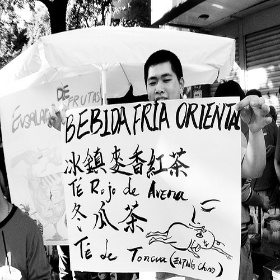 ENSALADA
DE
FRUTAS
BEBIDA FRIA ORIENTAL
冰鎮麥香紅茶
Té Rojo de Avena
冬瓜茶
Té de Toncua